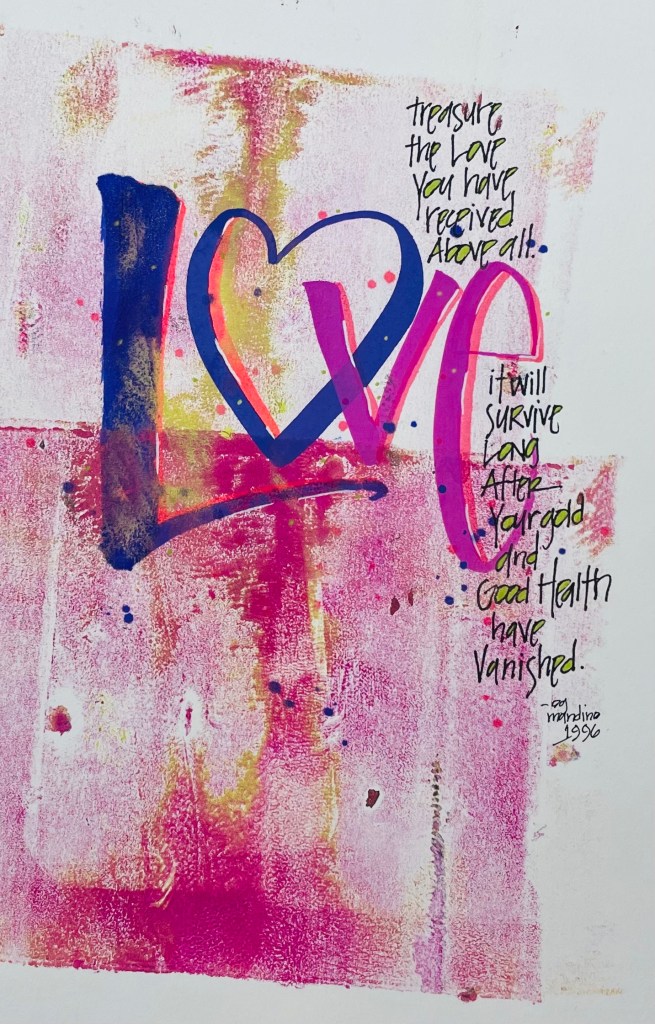 treasure
the Love
you have
received
Above all.
Love
it will
survive
Long
After
your gold
and
Good Health
have
vanished.
-og
mandino
1996